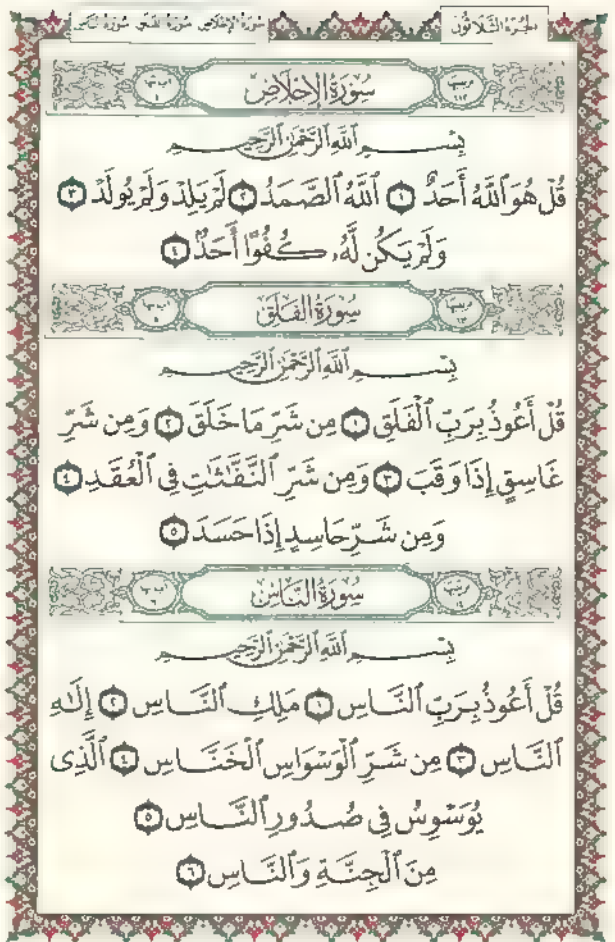 الجزء الثلاثون سورة الإخلاص سورة الفلق سورة الناس
ترتيبها ١١٢ سُورَةُ الإِخْلَاصِ آياتها ٤
بِسْمِ ٱللَّهِ ٱلرَّحْمَٰنِ ٱلرَّحِيمِ
قُلْ هُوَ ٱللَّهُ أَحَدٌ ١ ٱللَّهُ ٱلصَّمَدُ ٢ لَمْ يَلِدْ وَلَمْ يُولَدْ ٣
وَلَمْ يَكُن لَّهُۥ كُفُوًا أَحَدٌۢ ٤
ترتيبها سُورَةُ الفَلَقِ آياتها ٥
بِسْمِ ٱللَّهِ ٱلرَّحْمَٰنِ ٱلرَّحِيمِ
قُلْ أَعُوذُ بِرَبِّ ٱلْفَلَقِ ١ مِن شَرِّ مَا خَلَقَ ٢ وَمِن شَرِّ
غَاسِقٍ إِذَا وَقَبَ ٣ وَمِن شَرِّ ٱلنَّفَّٰثَٰتِ فِى ٱلْعُقَدِ ٤
وَمِن شَرِّ حَاسِدٍ إِذَا حَسَدَ ٥
ترتيبها سُورَةُ النَّاسِ آياتها ٦
بِسْمِ ٱللَّهِ ٱلرَّحْمَٰنِ ٱلرَّحِيمِ
قُلْ أَعُوذُ بِرَبِّ ٱلنَّاسِ ١ مَلِكِ ٱلنَّاسِ ٢ إِلَٰهِ
ٱلنَّاسِ ٣ مِن شَرِّ ٱلْوَسْوَاسِ ٱلْخَنَّاسِ ٤ ٱلَّذِى
يُوَسْوِسُ فِى صُدُورِ ٱلنَّاسِ ٥
مِنَ ٱلْجِنَّةِ وَٱلنَّاسِ ٦